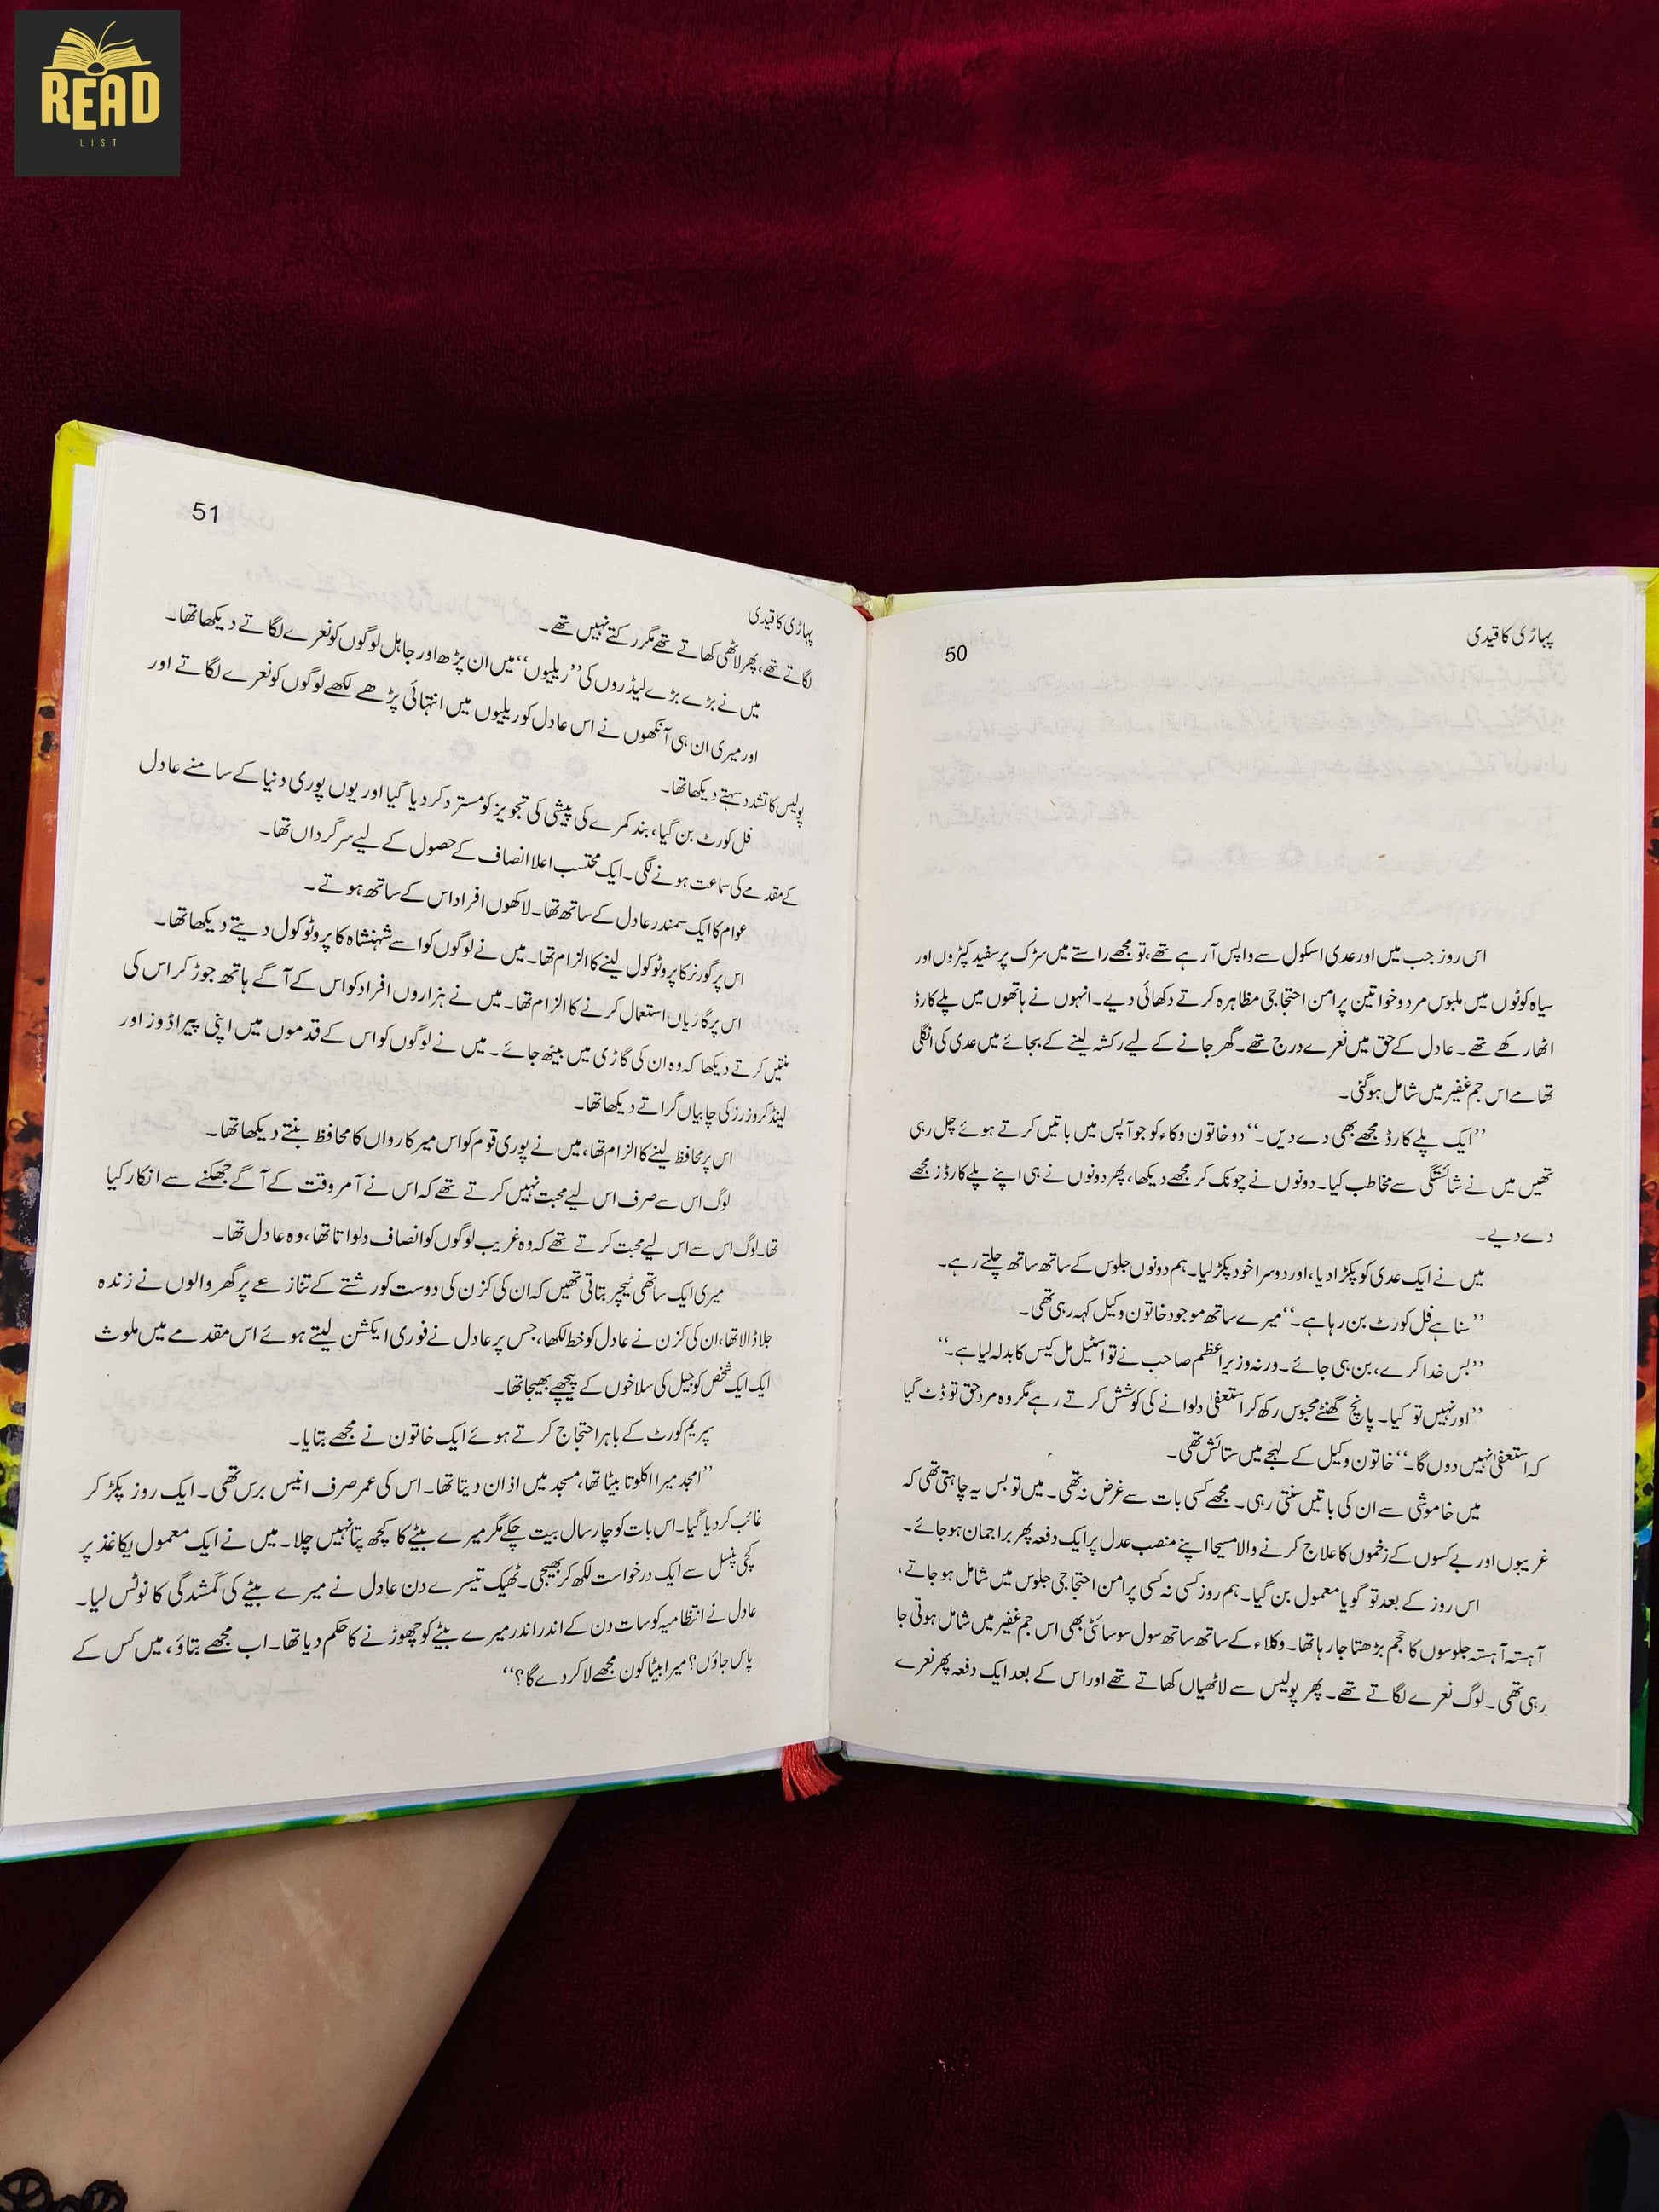 READ
LIST
پہاڑی کا قیدی
50
اس روز جب میں اور عدی اسکول سے واپس آ رہے تھے، تو مجھے راستے میں سڑک پر سفید کپڑوں اور
سیاہ کوٹوں میں ملبوس مرد و خواتین پرامن احتجاجی مظاہرہ کرتے دکھائی دیے۔ انہوں نے ہاتھوں میں پلے کارڈ
اٹھا رکھے تھے۔ عادل کے حق میں نعرے درج تھے۔ گھر جانے کے لیے رکشہ لینے کے بجائے میں عدی کی انگلی
تھامے اس جم غفیر میں شامل ہوگئی۔
”ایک پلے کارڈ مجھے بھی دے دیں۔“ دو خاتون وکاء کو جو آپس میں باتیں کرتے ہوئے چل رہی
تھیں میں نے شائستگی سے مخاطب کیا۔ دونوں نے چونک کر مجھے دیکھا، پھر دونوں نے ہی اپنے پلے کارڈز مجھے
دے دیے۔
میں نے ایک عدی کو پکڑا دیا، اور دوسرا خود پکڑ لیا۔ ہم دونوں جلوس کے ساتھ ساتھ چلتے رہے۔
”سنا ہے فل کورٹ بن رہا ہے۔“ میرے ساتھ موجود خاتون وکیل کہہ رہی تھی۔
”بس خدا کرے، بن ہی جائے۔ ورنہ وزیراعظم صاحب نے تو اسٹیل مل کیس کا بدلہ لیا ہے۔“
”اور نہیں تو کیا۔ پانچ گھنٹے محبوس رکھ کر استعفیٰ دلوانے کی کوشش کرتے رہے مگر وہ مرد حق تو ڈٹ گیا
کہ استعفیٰ نہیں دوں گا۔“ خاتون وکیل کے لہجے میں ستائش تھی۔
میں خاموشی سے ان کی باتیں سنتی رہی۔ مجھے کسی بات سے غرض نہ تھی۔ میں تو بس یہ چاہتی تھی کہ
غریبوں اور بے کسوں کے زخموں کا علاج کرنے والا مسیحا اپنے منصب عدل پر ایک دفعہ پھر براجمان ہو جائے۔
اس روز کے بعد تو گویا معمول بن گیا۔ ہم روز کسی نہ کسی پرامن احتجاجی جلوس میں شامل ہو جاتے،
آہستہ آہستہ جلوسوں کا حجم بڑھتا جا رہا تھا۔ وکلاء کے ساتھ ساتھ سول سوسائٹی بھی اس جم غفیر میں شامل ہوتی جا
رہی تھی۔ لوگ نعرے لگاتے تھے۔ پھر پولیس سے لاٹھیاں کھاتے تھے اور اس کے بعد ایک دفعہ پھر نعرے
51
پہاڑی کا قیدی
لگاتے تھے، پھر لاٹھی کھاتے تھے مگر رکتے نہیں تھے۔
میں نے بڑے بڑے لیڈروں کی ”ریلیوں“ میں ان پڑھ اور جاہل لوگوں کو نعرے لگاتے دیکھا تھا۔
اور میری ان ہی آنکھوں نے اس عادل کو ریلیوں میں انتہائی پڑھے لکھے لوگوں کو نعرے لگاتے اور
پولیس کا تشدد سہتے دیکھا تھا۔
فل کورٹ بن گیا، بند کمرے کی پیشی کی تجویز کو مسترد کر دیا گیا اور یوں پوری دنیا کے سامنے عادل
کے مقدمے کی سماعت ہونے لگی۔ ایک محتسب اعلا انصاف کے حصول کے لیے سرگرداں تھا۔
عوام کا ایک سمندر عادل کے ساتھ تھا۔ لاکھوں افراد اس کے ساتھ ہوتے۔
اس پر گورنر کا پروٹوکول لینے کا الزام تھا۔ میں نے لوگوں کو اسے شہنشاہ کا پروٹوکول دیتے دیکھا تھا۔
اس پر گاڑیاں استعمال کرنے کا الزام تھا۔ میں نے ہزاروں افراد کو اس کے آگے ہاتھ جوڑ کر اس کی
منتیں کرتے دیکھا کہ وہ ان کی گاڑی میں بیٹھ جائے۔ میں نے لوگوں کو اس کے قدموں میں اپنی پیراڈوز اور
لینڈ کروزرز کی چابیاں گراتے دیکھا تھا۔
اس پر محافظ لینے کا الزام تھا، میں نے پوری قوم کو اس میر کارواں کا محافظ بنتے دیکھا تھا۔
لوگ اس سے صرف اس لیے محبت نہیں کرتے تھے کہ اس نے آمر وقت کے آگے جھکنے سے انکار کیا
تھا۔ لوگ اس سے اس لیے محبت کرتے تھے کہ وہ غریب لوگوں کو انصاف دلواتا تھا، وہ عادل تھا۔
میری ایک ساتھی ٹیچر بتاتی تھیں کہ ان کی کزن کی دوست کو رشتے کے تنازعے پر گھر والوں نے زندہ
جلا ڈالا تھا، ان کی کزن نے عادل کو خط لکھا، جس پر عادل نے فوری ایکشن لیتے ہوئے اس مقدمے میں ملوث
ایک ایک شخص کو جیل کی سلاخوں کے پیچھے بھیجا تھا۔
سپریم کورٹ کے باہر احتجاج کرتے ہوئے ایک خاتون نے مجھے بتایا۔
”امجد میرا اکلوتا بیٹا تھا، مسجد میں اذان دیتا تھا۔ اس کی عمر صرف انیس برس تھی۔ ایک روز پکڑ کر
غائب کر دیا گیا۔ اس بات کو چار سال بیت چکے مگر میرے بیٹے کا کچھ پتا نہیں چلا۔ میں نے ایک معمول یکاغذ پر
کچی پنسل سے ایک درخواست لکھ کر بھیجی۔ ٹھیک تیسرے دن عادل نے میرے بیٹے کی گمشدگی کا نوٹس لیا۔
عادل نے انتظامیہ کو سات دن کے اندر اندر میرے بیٹے کو چھوڑنے کا حکم دیا تھا۔ اب مجھے بتاؤ، میں کس کے
پاس جاؤں؟ میرا بیٹا کون مجھے لا کر دے گا؟“